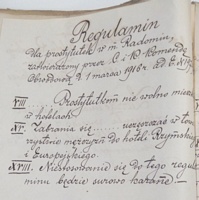 Regulamin
dla prostytutek w m. Radomiu,
zatwierdzony przez C. i K. Komendę
Obwodową d. 1 marca 1916 r.
VIII ... Prostytutkom nie wolno
w hotelach
XV. Zabrania się ........ uczęszczać w
męzczyzn do hoteli Rzymskiego
i Europejskiego.
XVIII. Niestosowanie się do tego regula-
minu będzie surowo karane.